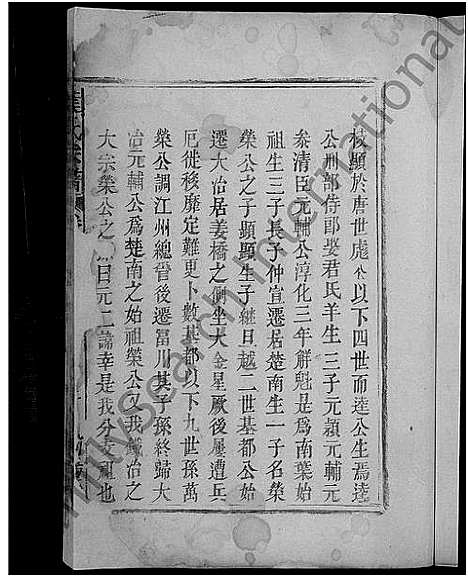 枝顯於唐世彪公以下四世而逵公生焉逵
公刑部侍郎娶君氏羊生三子元穎元輔元
叅清臣元輔公淳化三年解魁是爲南葉始
祖生三子長子仲宣遷居楚南生一子名榮
榮公之子顯顯生子繼日越二世基都公始
遷大冶居姜橋之側坐大金星厥後屢遭兵
厄徙移靡定難更卜數基都以下九世孫萬
榮公調江州總管後遷富川其子孫終歸大
冶元輔公爲楚南之始祖榮公又我鐵冶之
大宗榮公之 曰元二諱幸是我分支祖也
FamilySearch International